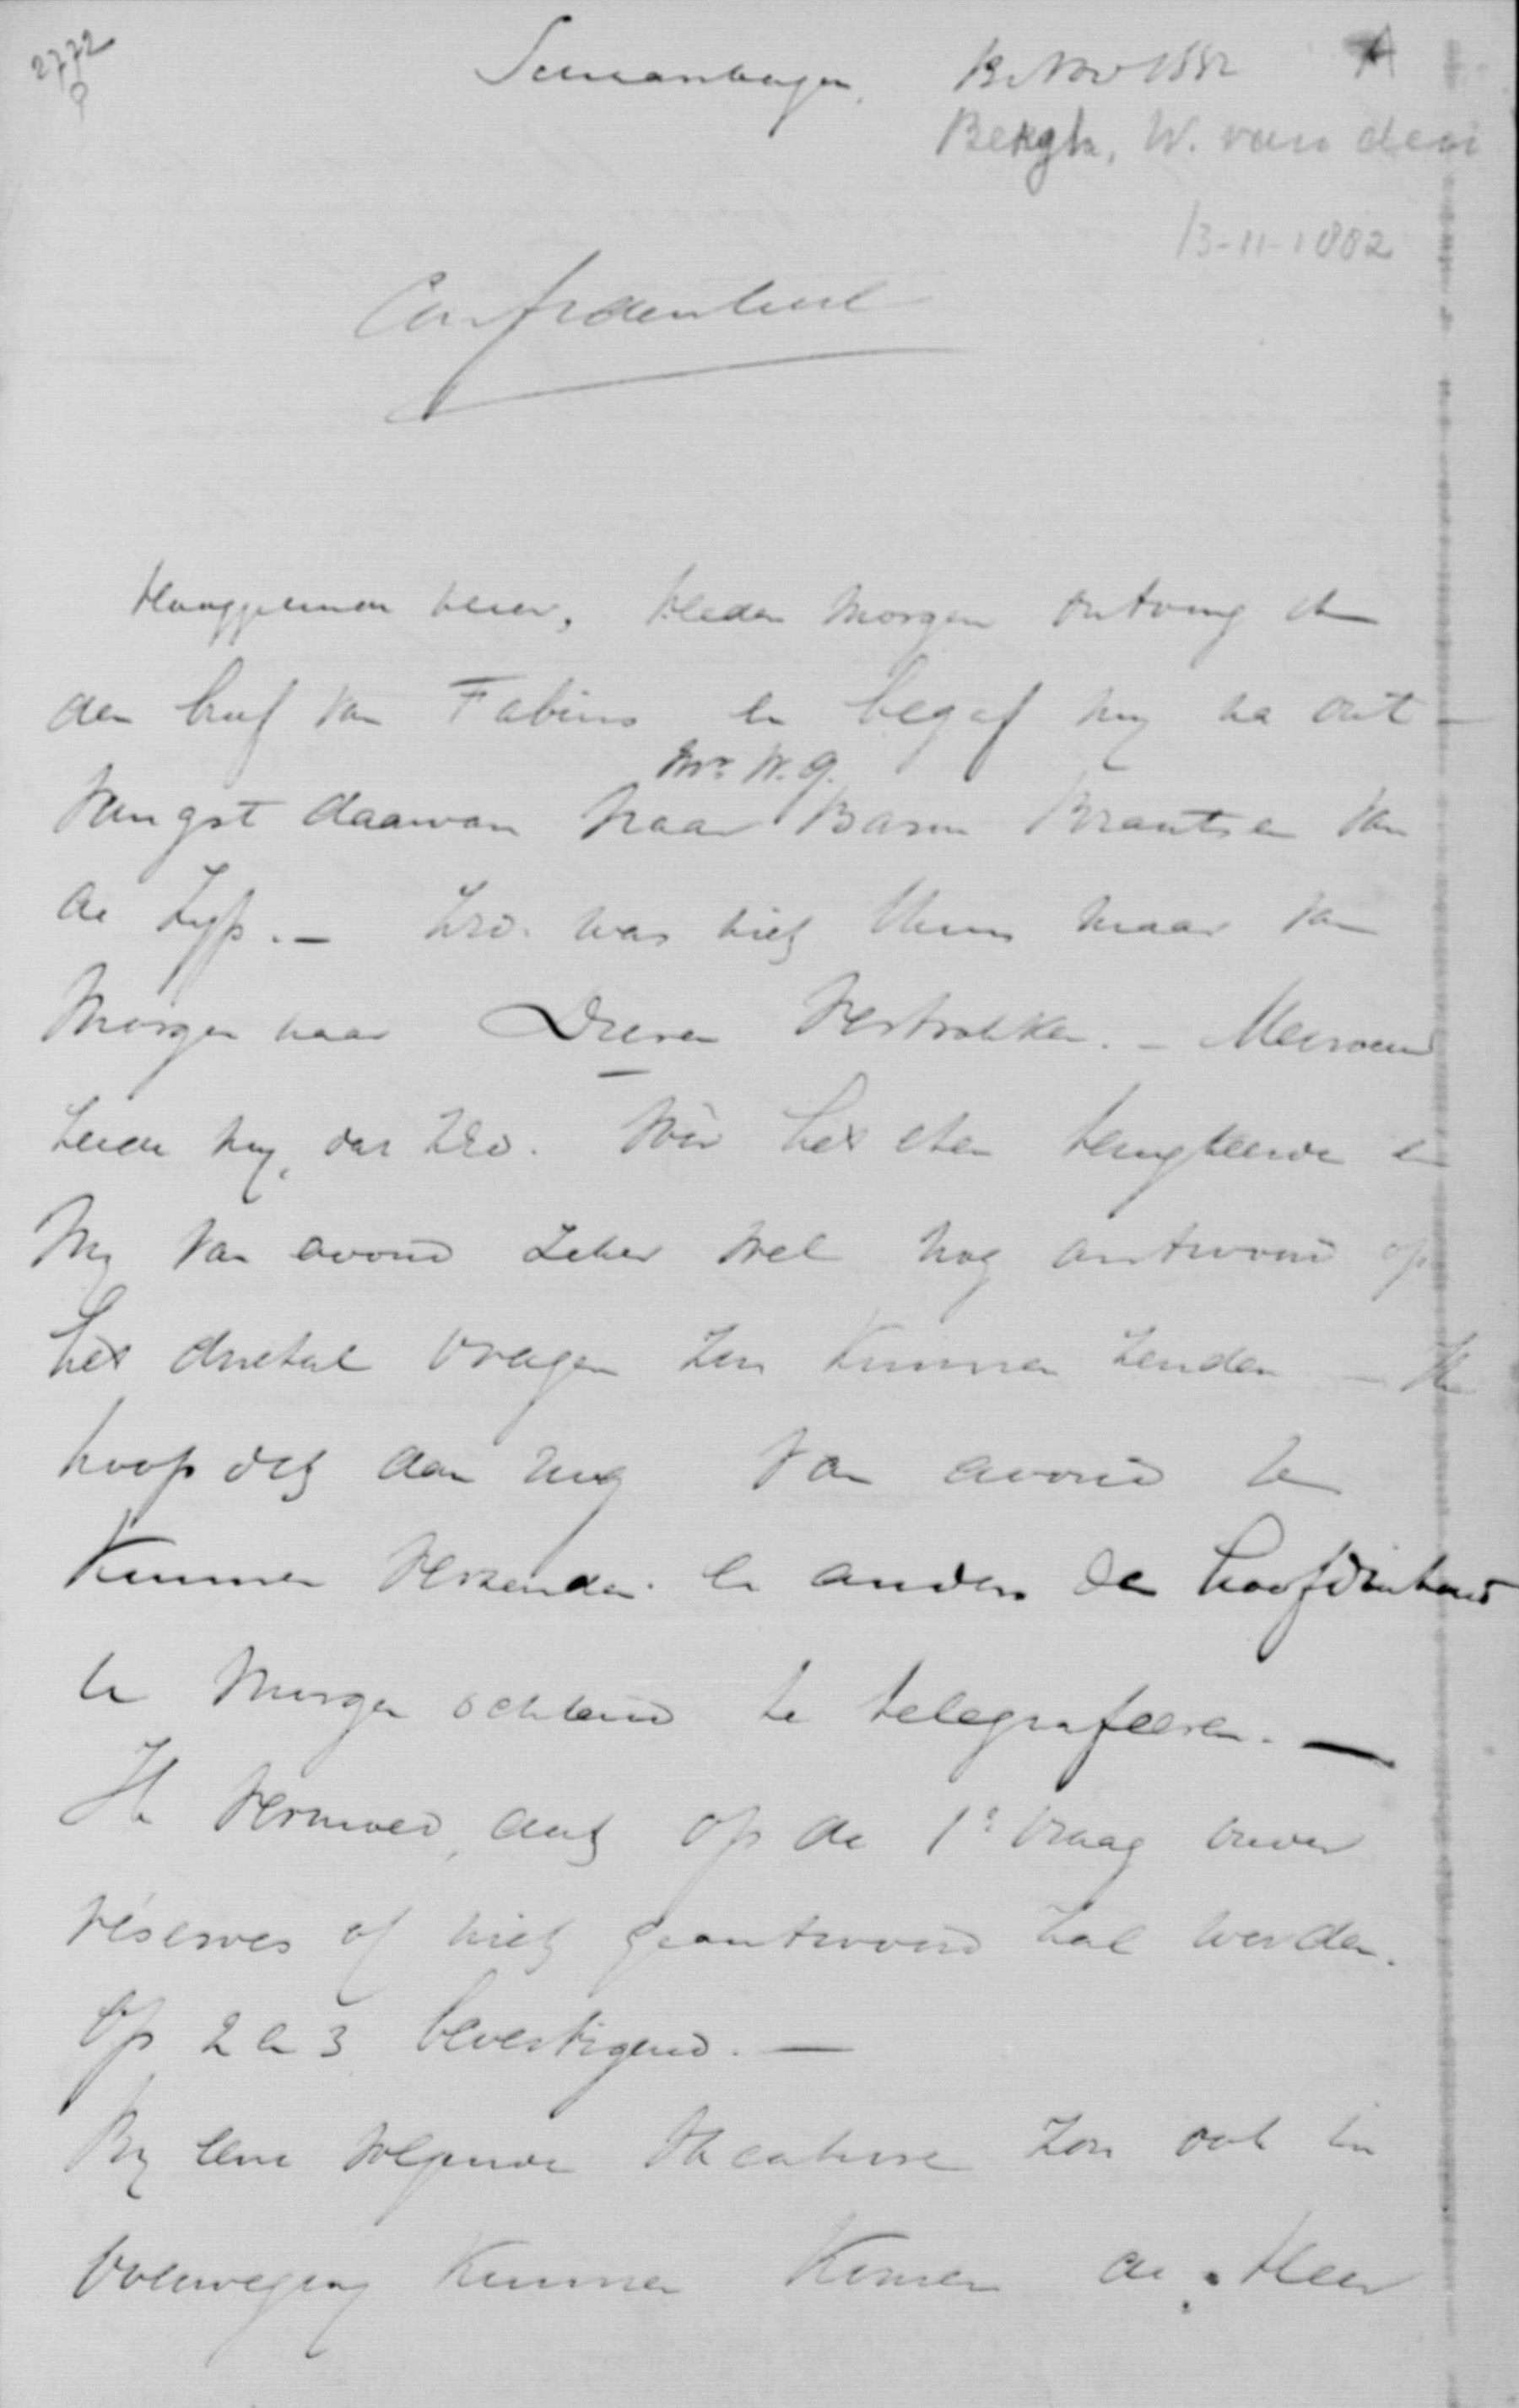 2772
Schaarsbergen, 13 Nov 1882 A
Bergh, W. van den
13-11-1882
Confidentieel
Hooggeleerde heer, Heden morgen ontving ik
den brief van Fabius en begaf mij na ont-
Mr. W. G.
vangst daarvan naar Baron Brantsen van
de Zyp. — ZEd. was niet thuis maar van
morgen naar Dieren vertrokken. — Mevrouw
zeide mij, dat ZEd. vóór het eten terugkeerde en
mij van avond zeker wel nog antwoord op
het drietal vragen zou kunnen zenden — Ik
hoop dit dan nog van avond te
kunnen verzenden en anders den hoofdinhoud
te morgen ochtend te telegrafeeren. —
Ik vermoed, dat op de 1e vraag onder
réserves of niet geantwoord zal worden.
Op 2 en 3 bevestigend. —
By eene volgende vacature zou ook in
overweging kunnen komen de Heer